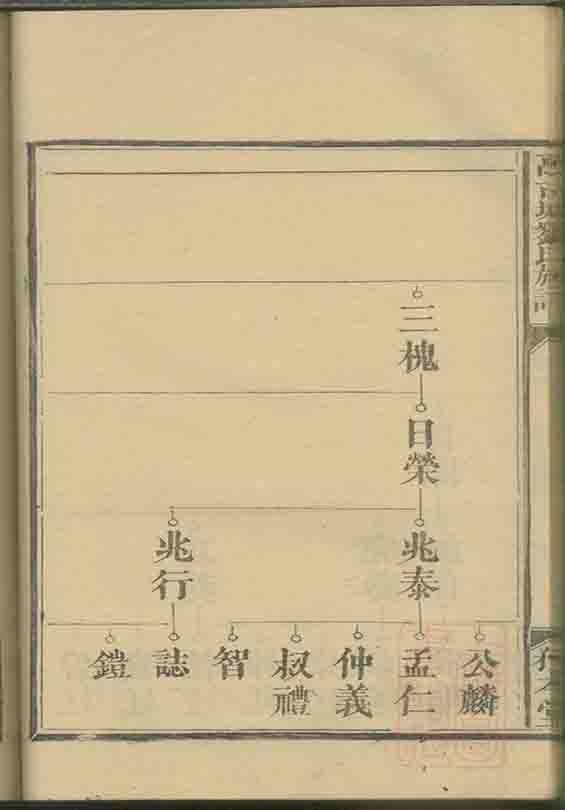 三槐
日榮
兆泰
兆行
公麟
孟仁
仲義
叔禮
智
誌
鎧